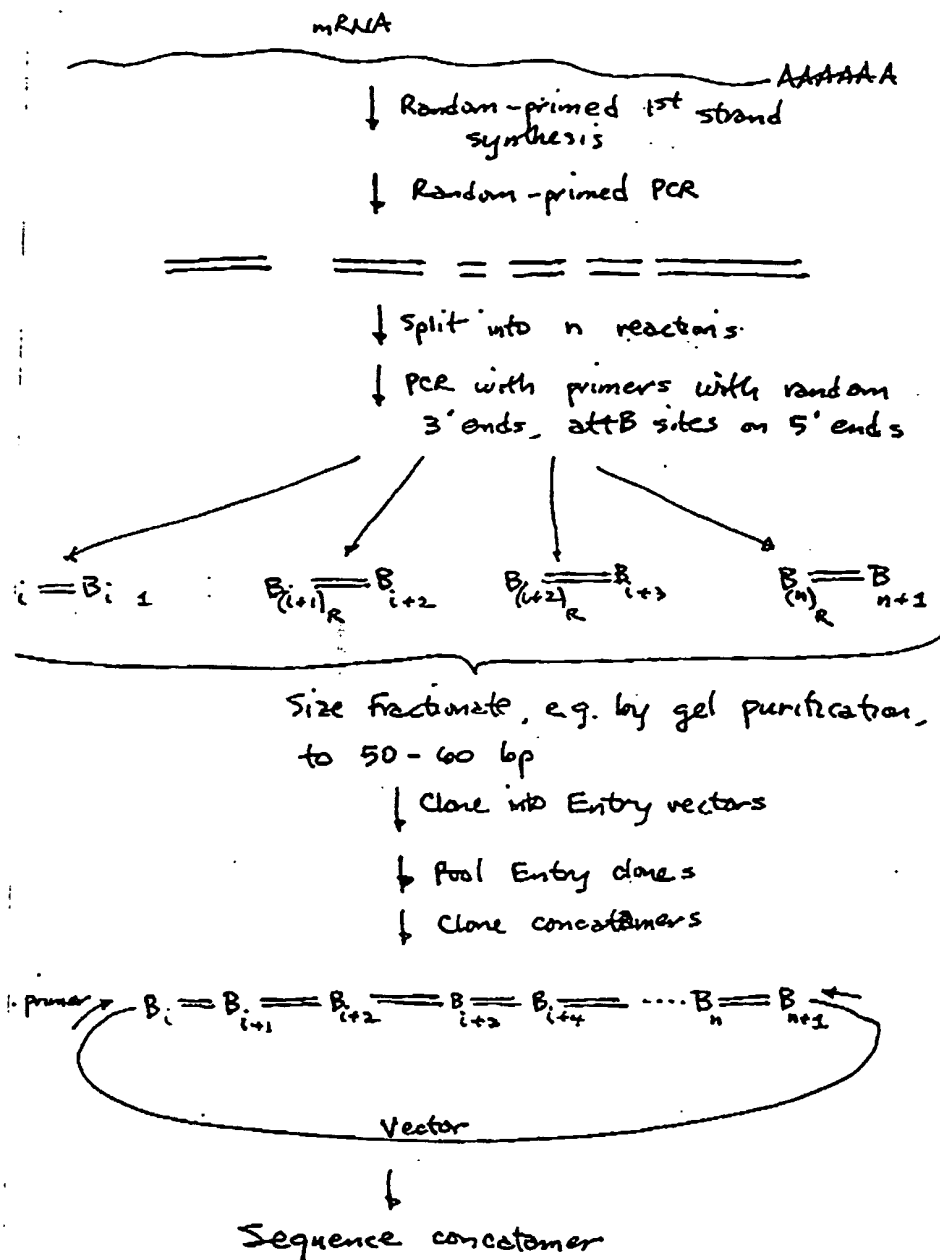 mRNA
AAAAAA
Random-primed 1st strand
synthesis
Random-primed PCR
Split into n reactions.
PCR with primers with random
3' ends, attB sites on 5' ends
i B i 1
B (i+1) R B i+2
B (i+2) R B i+3
B (n) R B n+1
Size fractionate, e.g. by gel purification,
to 50-60 bp
Clone into Entry vectors
Pool Entry clones
Clone concatamers
primer B i B i+1 B i+2 B i+3 B i+4 ···· B n B n+1
Vector
Sequence concatomer